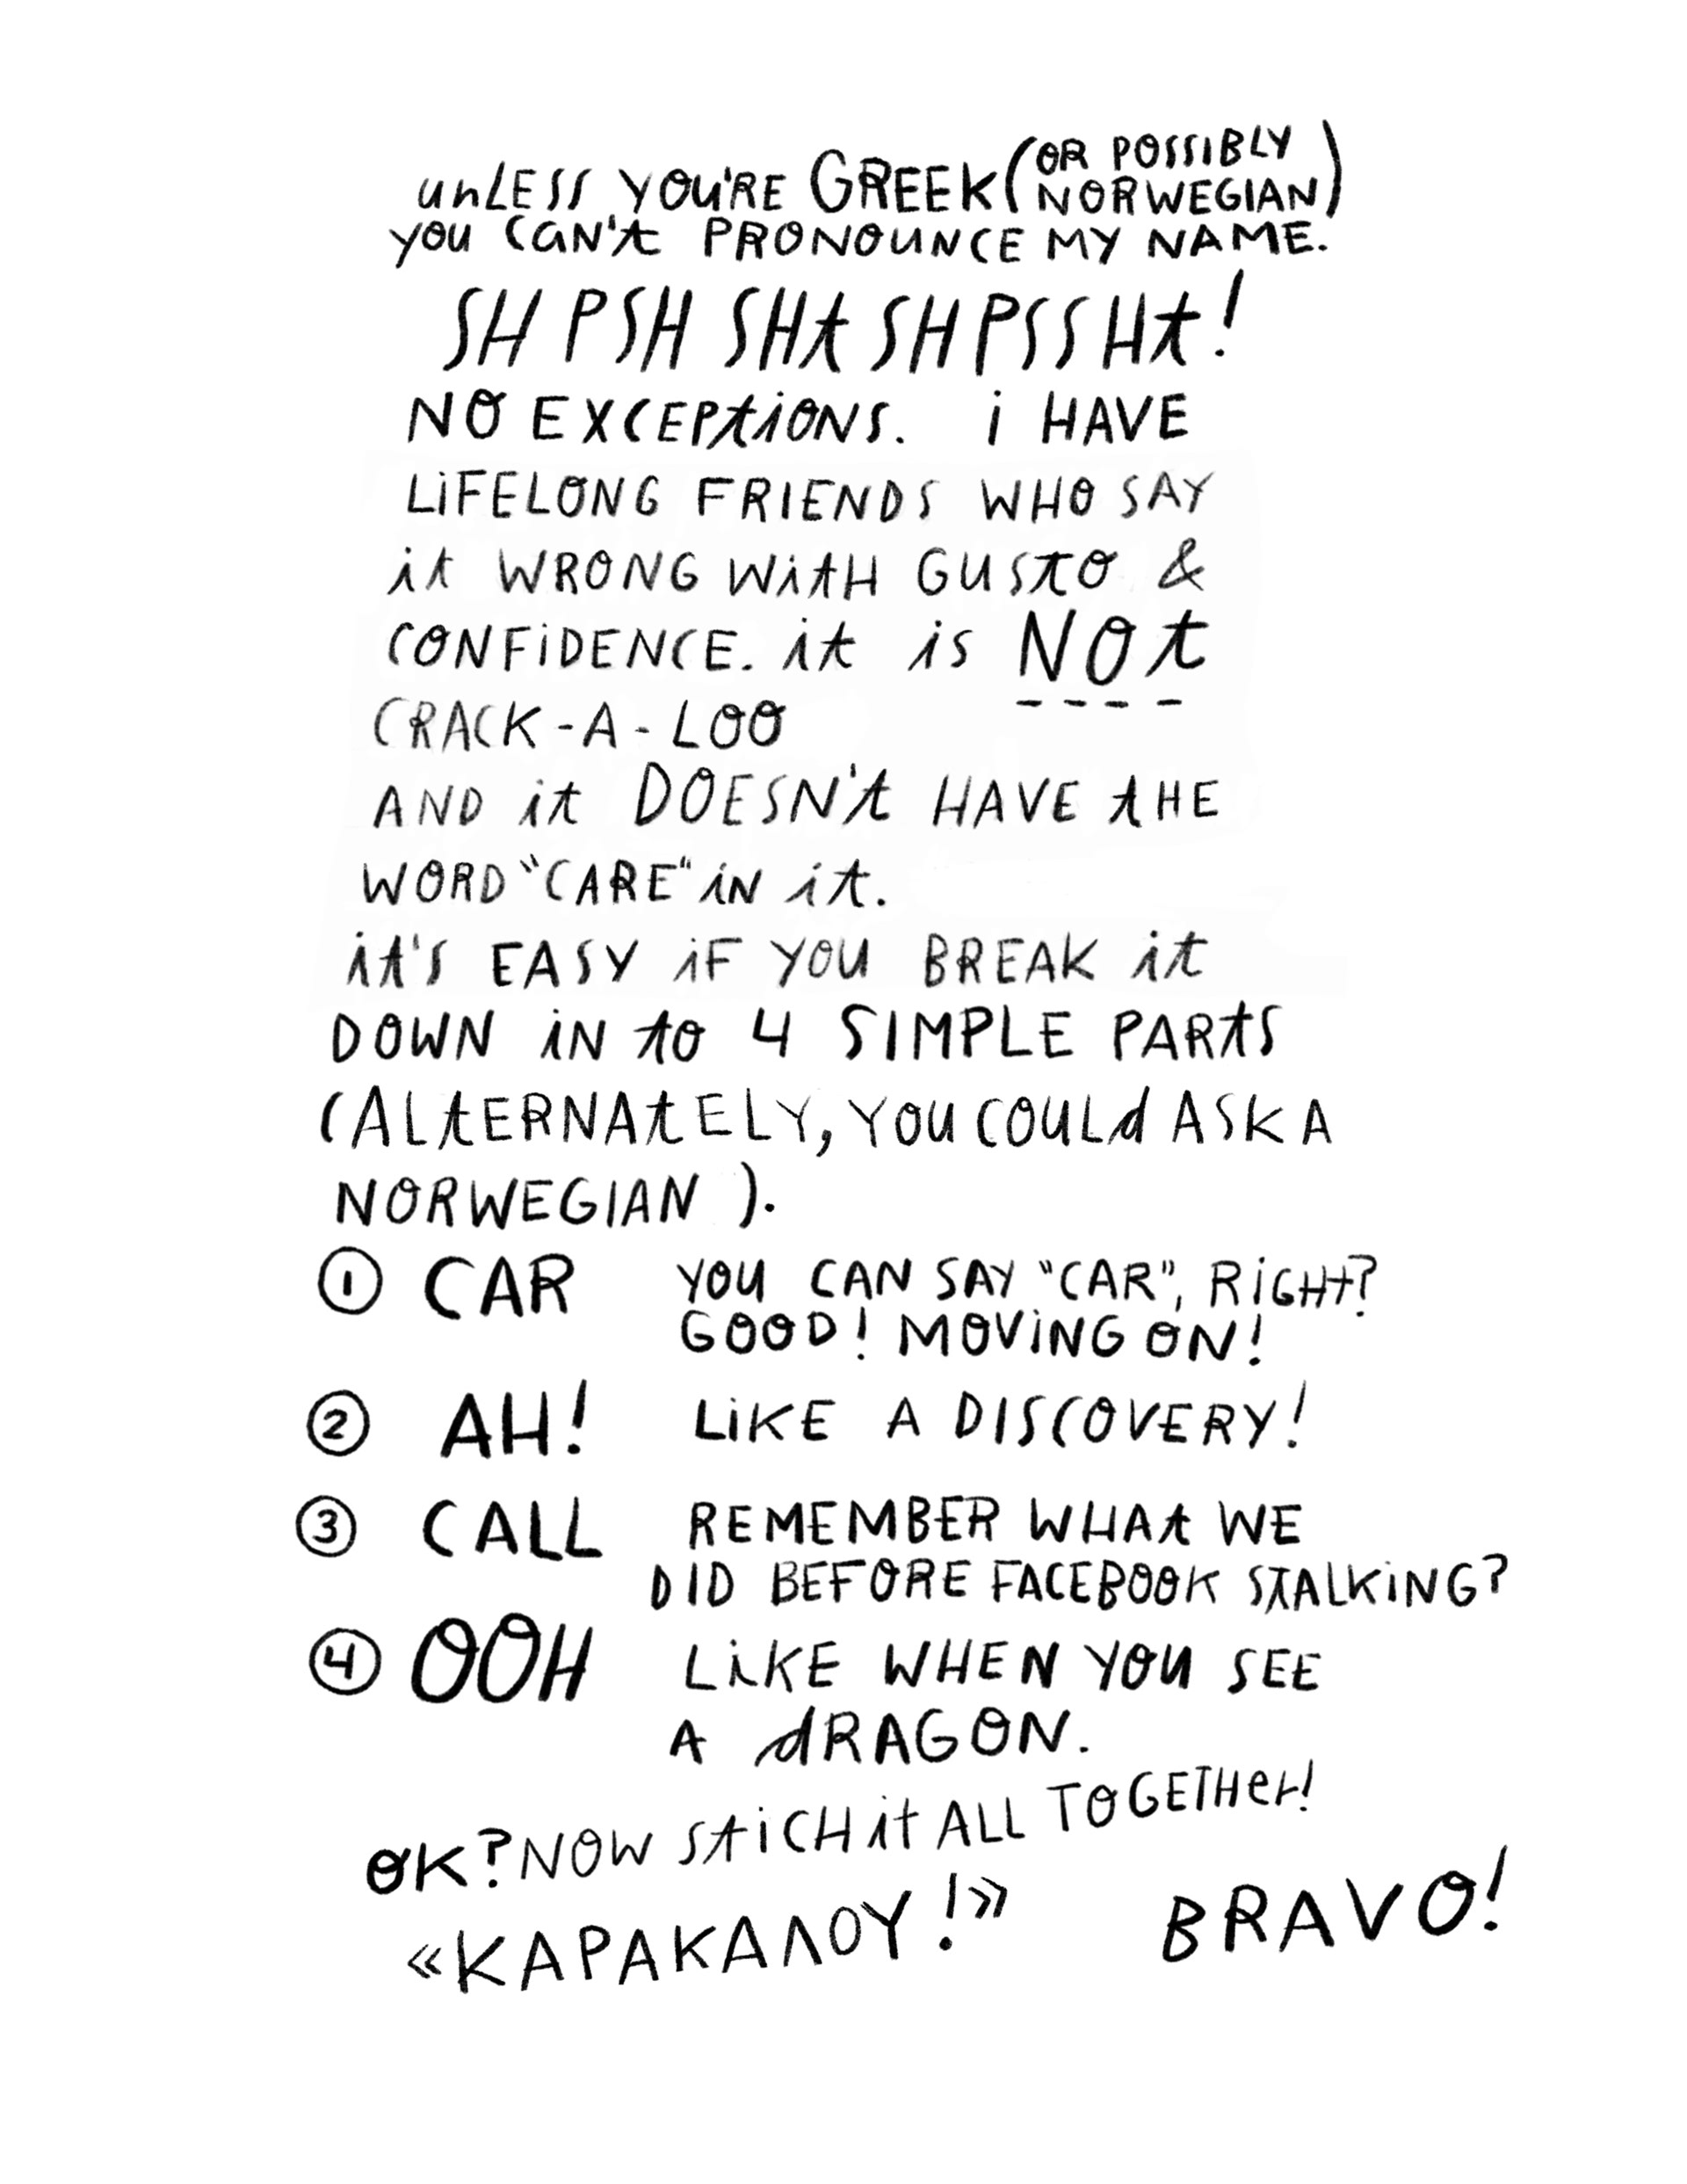 unLESS YOU'RE GREEK (OR POSSIBLY NORWEGIAN)
YOU CAN't PRONOUNCE MY NAME.
SH PSH SHt SHPSSHt!
NO EXCEPtiONS. i HAVE
LiFELONG FRIENDS WHO SAY
it WRONG WitH GUStO &
CONFiDENCE. it is NOt
CRACK-A-LOO
AND it DOESN't HAVE tHE
WORD "CARE" iN it.
it's EASY iF YOU BREAK it
DOWN iN tO 4 SIMPLE PARtS
(ALtERNAtELY, YOU COULd ASK A
NORWEGIAN ).
① CAR YOU CAN SAY "CAR", RiGHt?
GOOD! MOViNG ON!
② AH! LiKE A DISCOVERY!
③ CALL REMEMBER WHAt WE
DID BEFORE FACEBOOK StALKiNG?
④ OOH LiKE WHEN YOU SEE
A dRAGON.
OK? NOW StiCH it ALL TOGETHer!
«ΚΑΡΑΚΑΛΟΥ!» BRAVO!